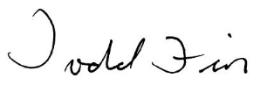 Todd Fin